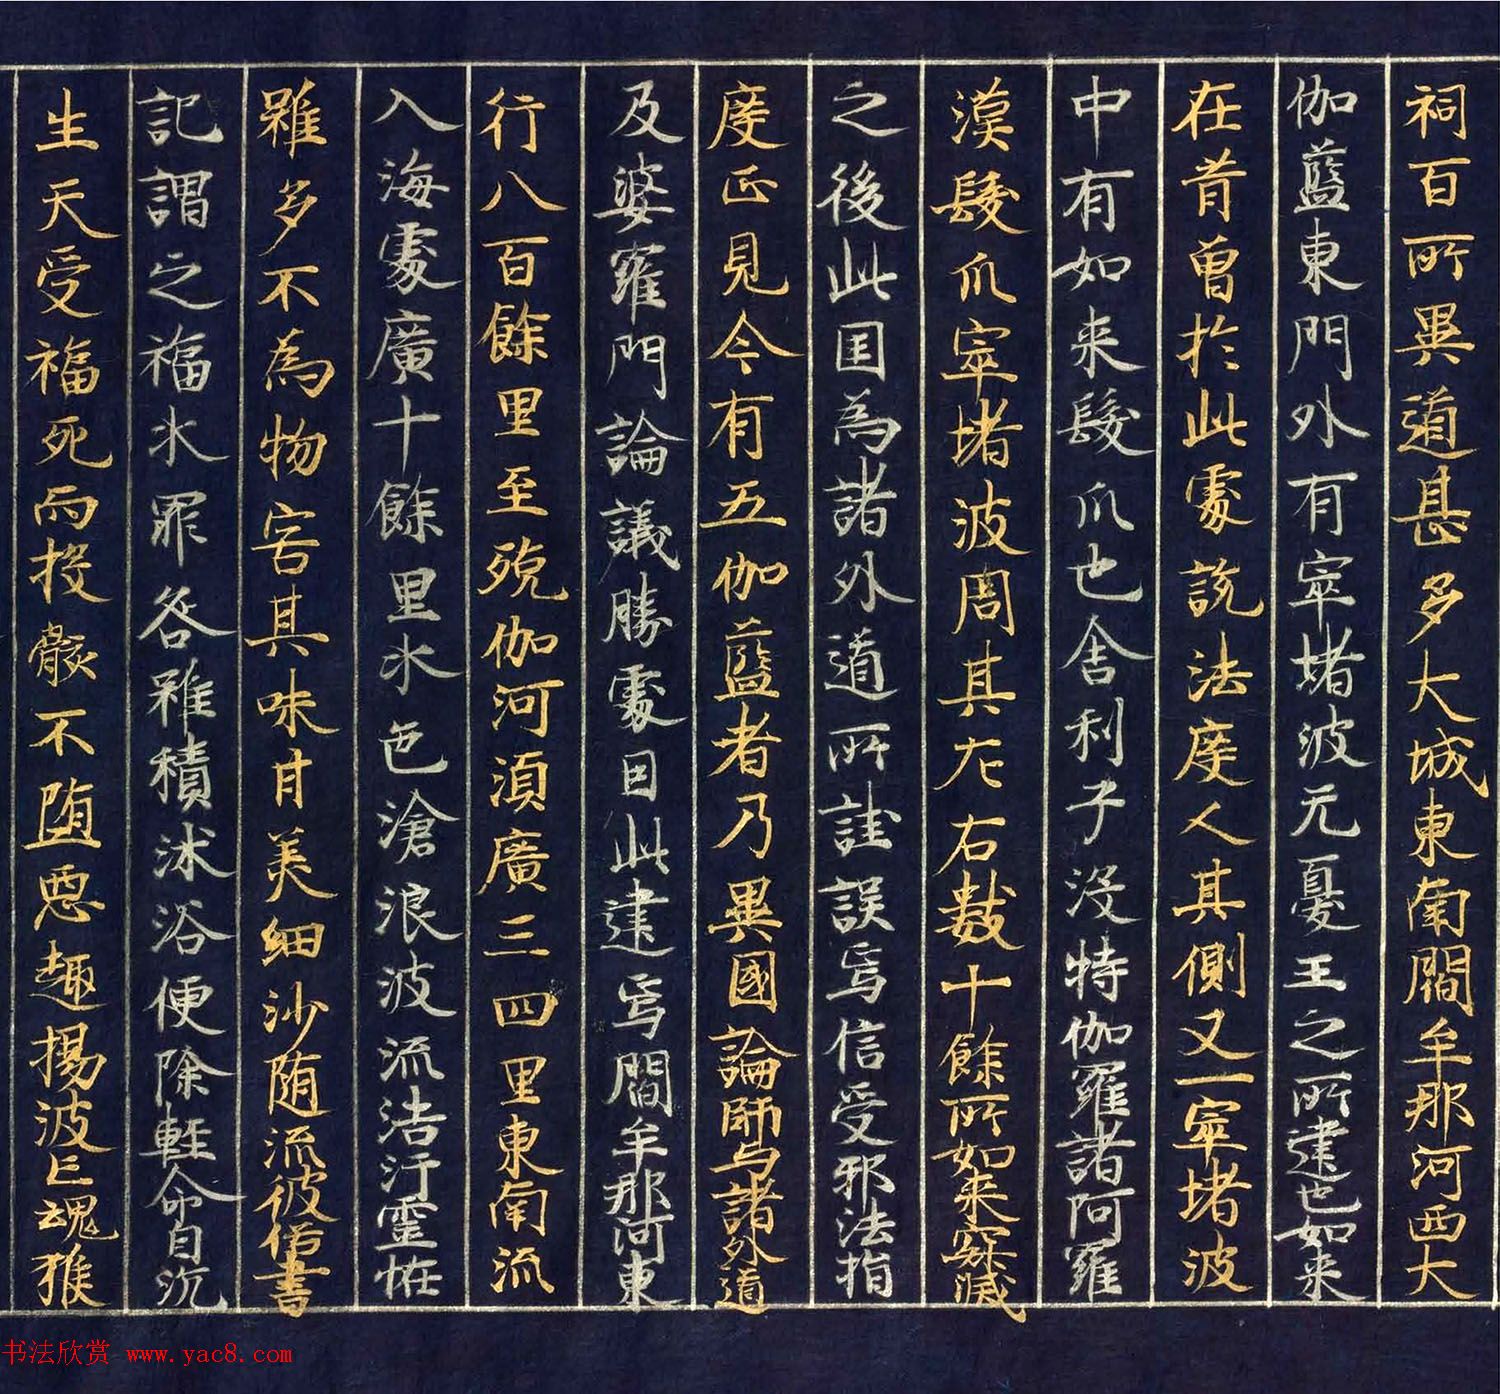 祠百所異道甚多大城東南閻牟那河西大
伽藍東門外有窣堵波无憂王之所建也如来
在昔曾於此處說法度人其側又一窣堵波
中有如来髮爪也舍利子没特伽羅諸阿羅
漢髮爪窣堵波周其左右數十餘所如来寂滅
之後此国為諸外道所詿誤焉信受邪法指
度正見今有五伽藍者乃異國論師与諸外道
及婆羅門論議勝處因此建焉閻牟那河東
行八百餘里至殑伽河湏廣三四里東南流
入海處廣十餘里水色滄浪波流浩汙靈恠
雖多不為物害其味甘美細沙随流彼俗書
記謂之福水罪咎雖積沐浴便除輊命自沉
生天受福死而投骸不堕惡趣揚波亡魂獲
书法欣赏 www.yac8.com